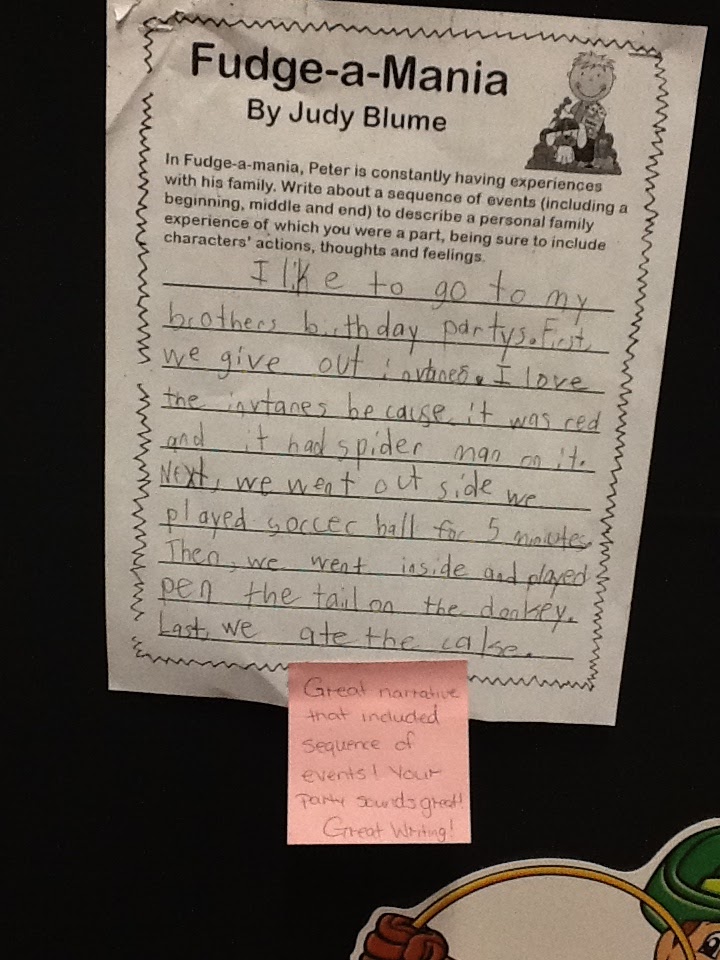 Fudge-a-Mania
By Judy Blume
In Fudge-a-mania, Peter is constantly having experiences
with his family. Write about a sequence of events (including a
beginning, middle and end) to describe a personal family
experience of which you were a part, being sure to include
characters' actions, thoughts and feelings.
I like to go to my
brothers birthday partys. First,
we give out invtanes. I love
the invtanes because it was red
and it had spider man on it.
Next, we went out side we
played soccer ball for 5 minutes.
Then, we went inside and played
pen the tail on the donkey.
Last, we ate the cake.
Great narrative
that included
sequence of
events! Your
Party sounds great!
Great Writing!